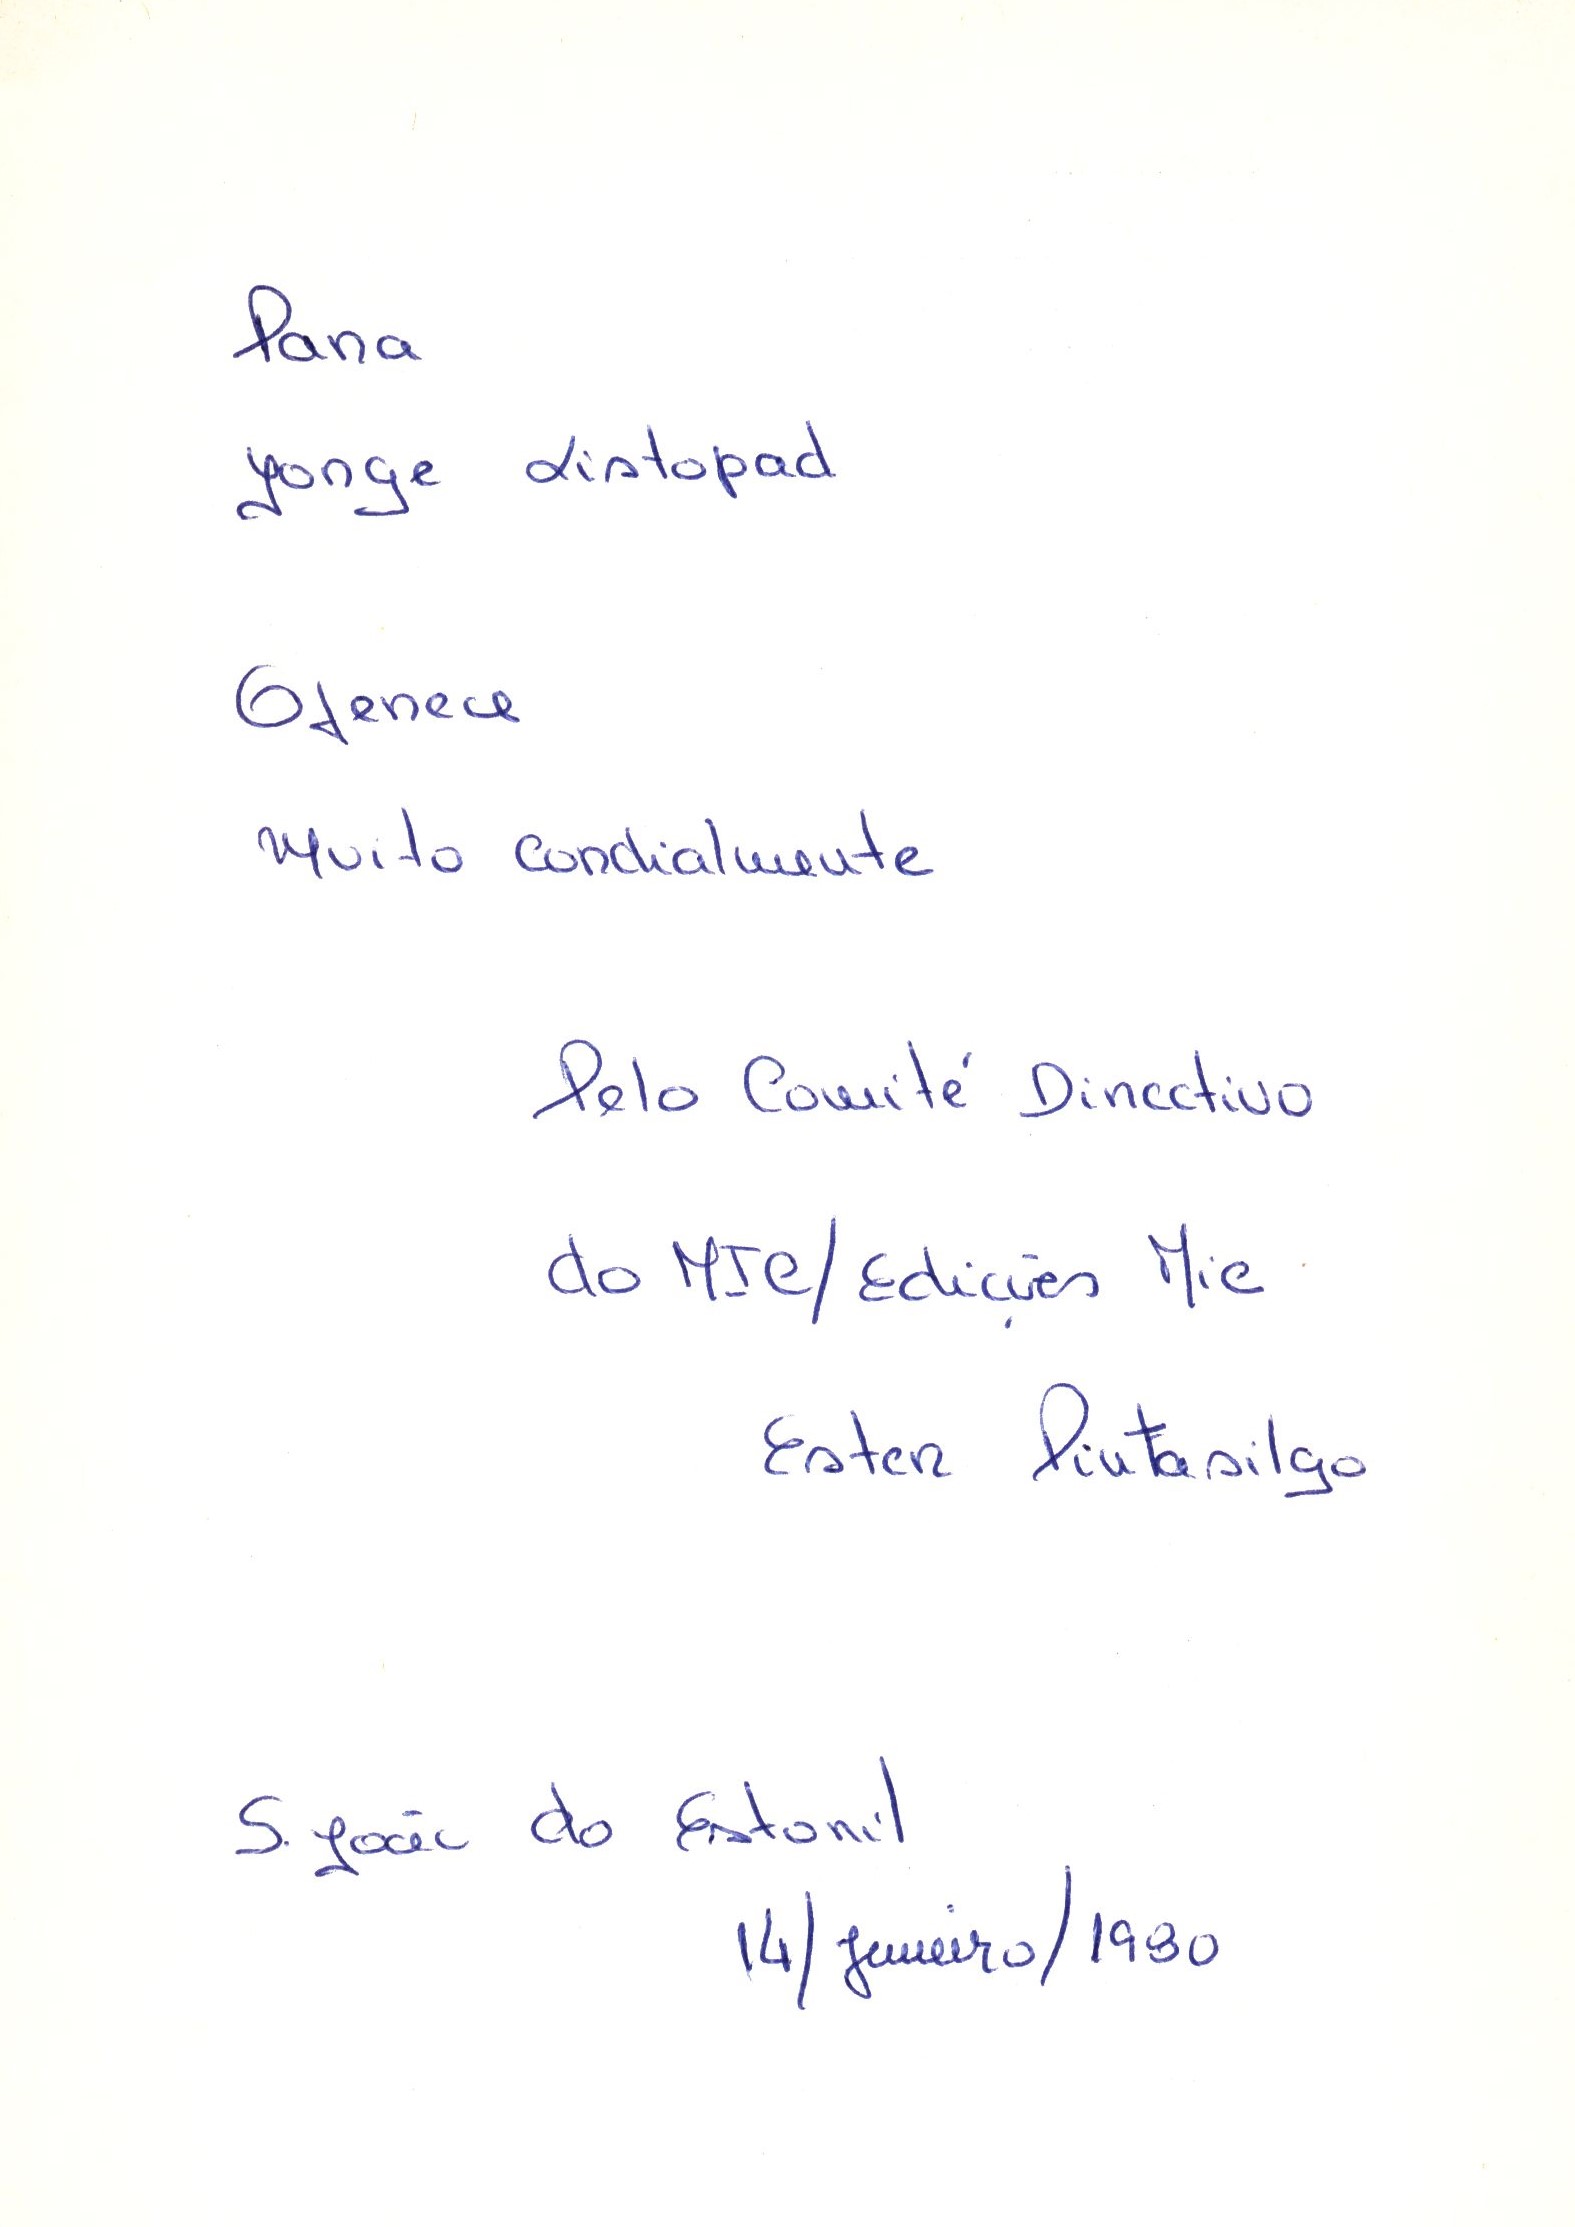 Para
Jorge Listopad
Oferece
Muito cordialmente
Pelo Comité Directivo
do MIC/Edições Mic
Ester Pintasilgo
S. João do Estoril
14/Janeiro/1980